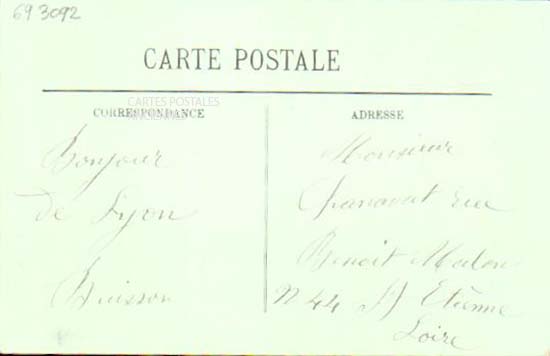 69 3092
CARTE POSTALE
CARTES POSTALES
ANCIENNES
CORRESPONDANCE
Bonjour
de Lyon
Buisson
ADRESSE
Monsieur
Chanavat rue
Benoit Malon
N 44 St Etienne
Loire